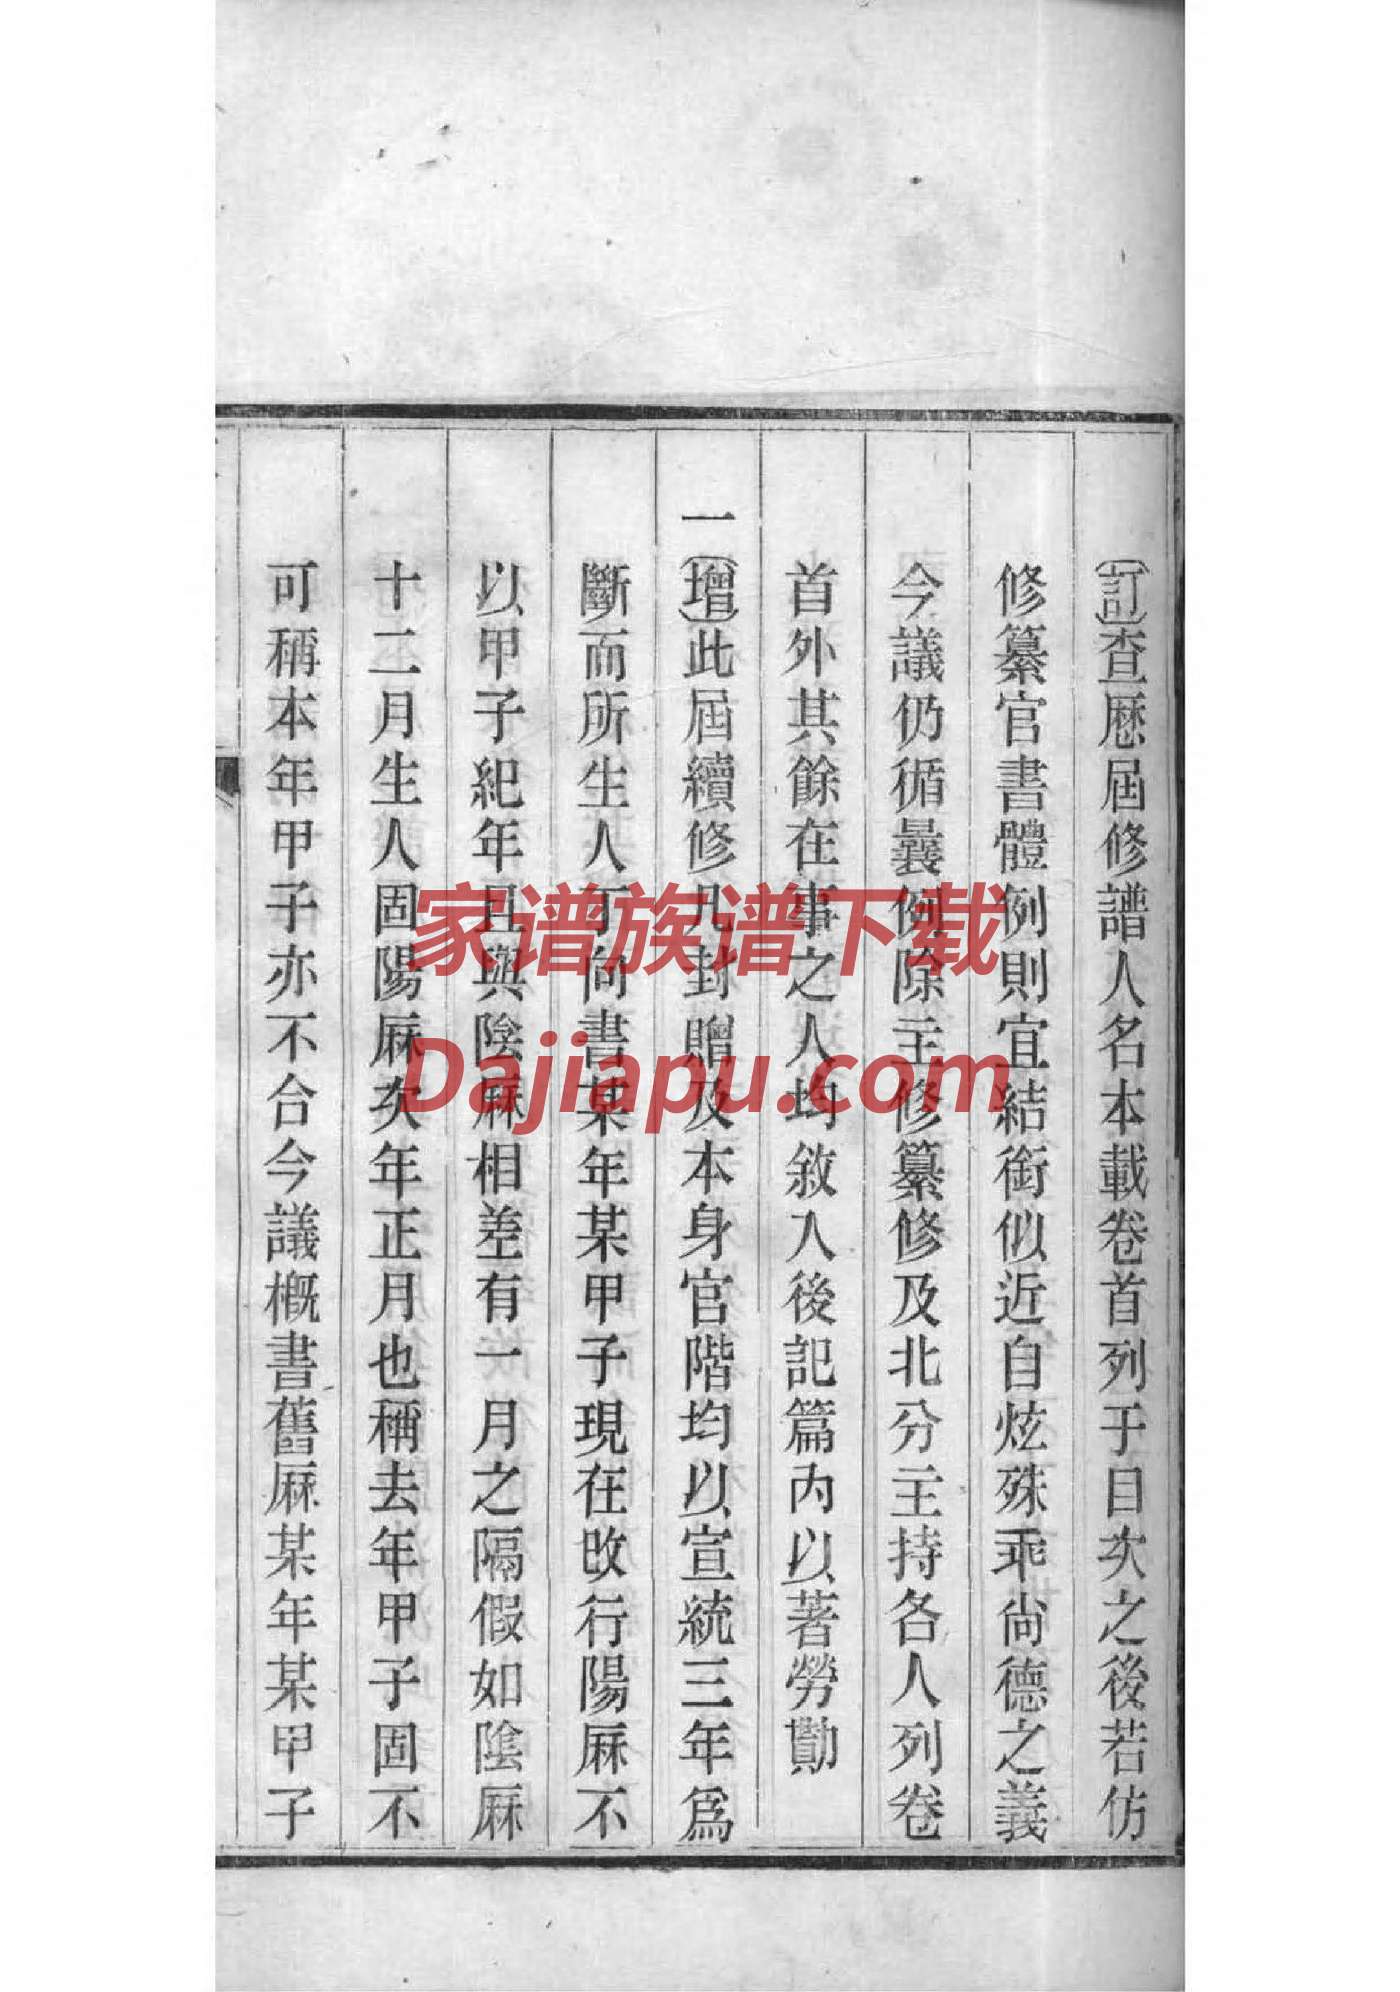 (訂)查歷屆修譜人名本載卷首列于目次之後若仿
修纂官書體例則宜結銜似近自炫殊乖尚德之義
今議仍循曩例除主修纂修及北分主持各人列卷
首外其餘在事之人均敘入後記篇內以著勞勩
一(增)此屆續修凡封贈及本身官階均以宣統三年爲
斷而所生人丁向書某年某甲子現在改行陽厤不
以甲子紀年且與陰厤相差有一月之隔假如陰厤
十二月生人固陽厤次年正月也稱去年甲子固不
可稱本年甲子亦不合今議概書舊厤某年某甲子
家谱族谱下载
Dajiapu.com